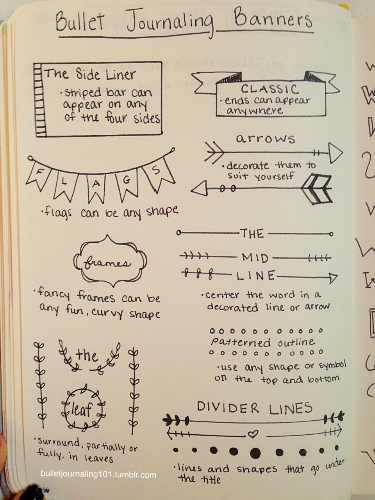 Bullet Journaling Banners
The Side Liner
• striped bar can
appear on any
of the four sides
CLASSIC
• ends can appear
anywhere
FLAGS
• flags can be any shape
arrows
• decorate them to
suit yourself
frames
• fancy frames can be
any fun, curvy shape
THE
MID
LINE
• center the word in a
decorated line or arrow
the
leaf
• surround, partially or
fully, in leaves
patterned outline
• use any shape or symbol
on the top and bottom
DIVIDER LINES
• lines and shapes that go under
the title
bulletjournaling101.tumblr.com